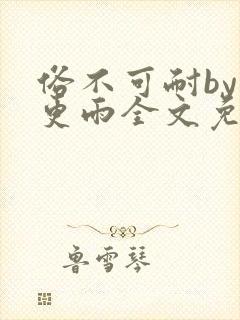 俗不可耐by
更雨全文免
鲁雪琴